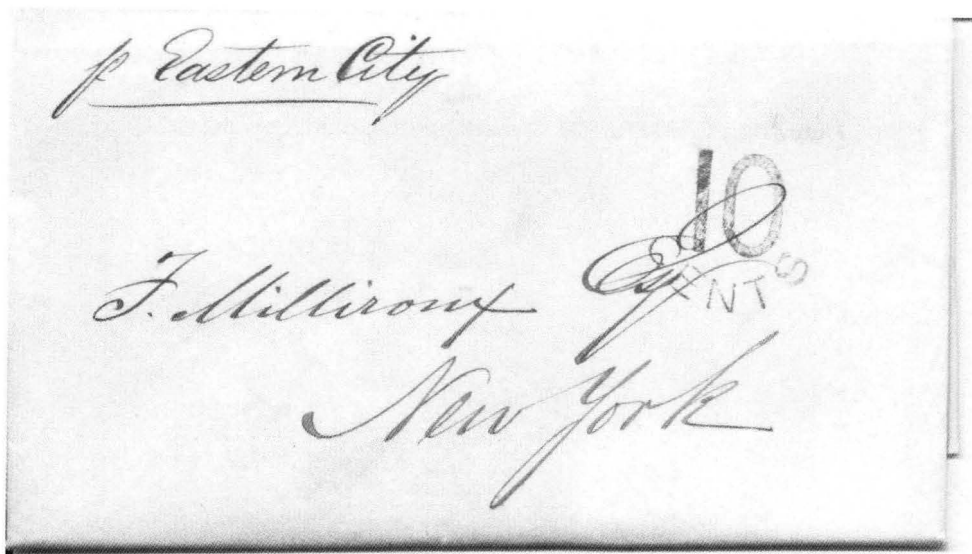 p Eastern City
10
CENTS
F. Milliroux Esq
New York